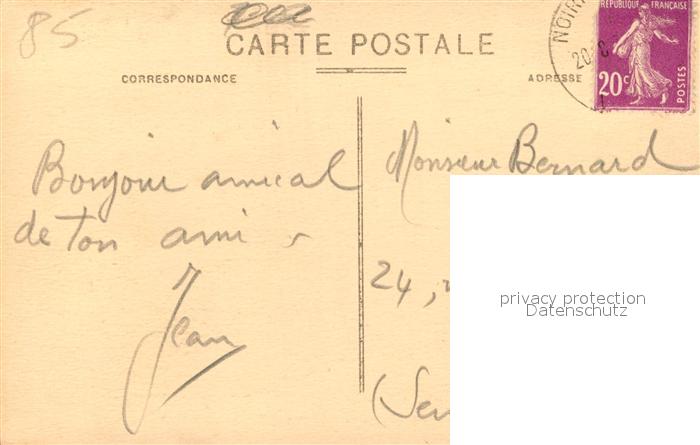 85
CARTE POSTALE
CORRESPONDANCE
ADRESSE
RÉPUBLIQUE FRANÇAISE
20c
POSTES
Bonjour amical
de ton ami
Jean
Monsieur Bernard
24,
(Sei
privacy protection
Datenschutz